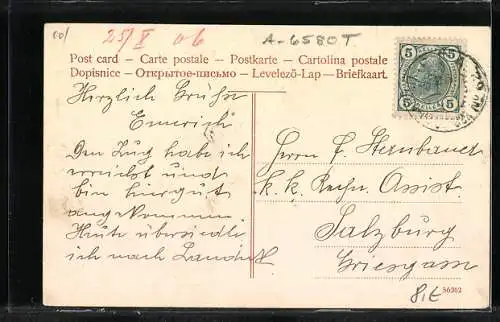 25/X 06
A-6580T
Post card – Carte postale – Postkarte – Cartolina postale
Dopisnice – Открытое-письмо – Levelező-Lap – Briefkart.
5 5
5 5
Herzlich Grüße
Emmerich
Den Zug habe ich
erreicht und
bin hier gut
angekommen.
Heute übersiedle
ich nach
Herrn F. Sternbauer
k. k. Rechn. Assist.
Salzburg
Griesgasse
56362
8,€